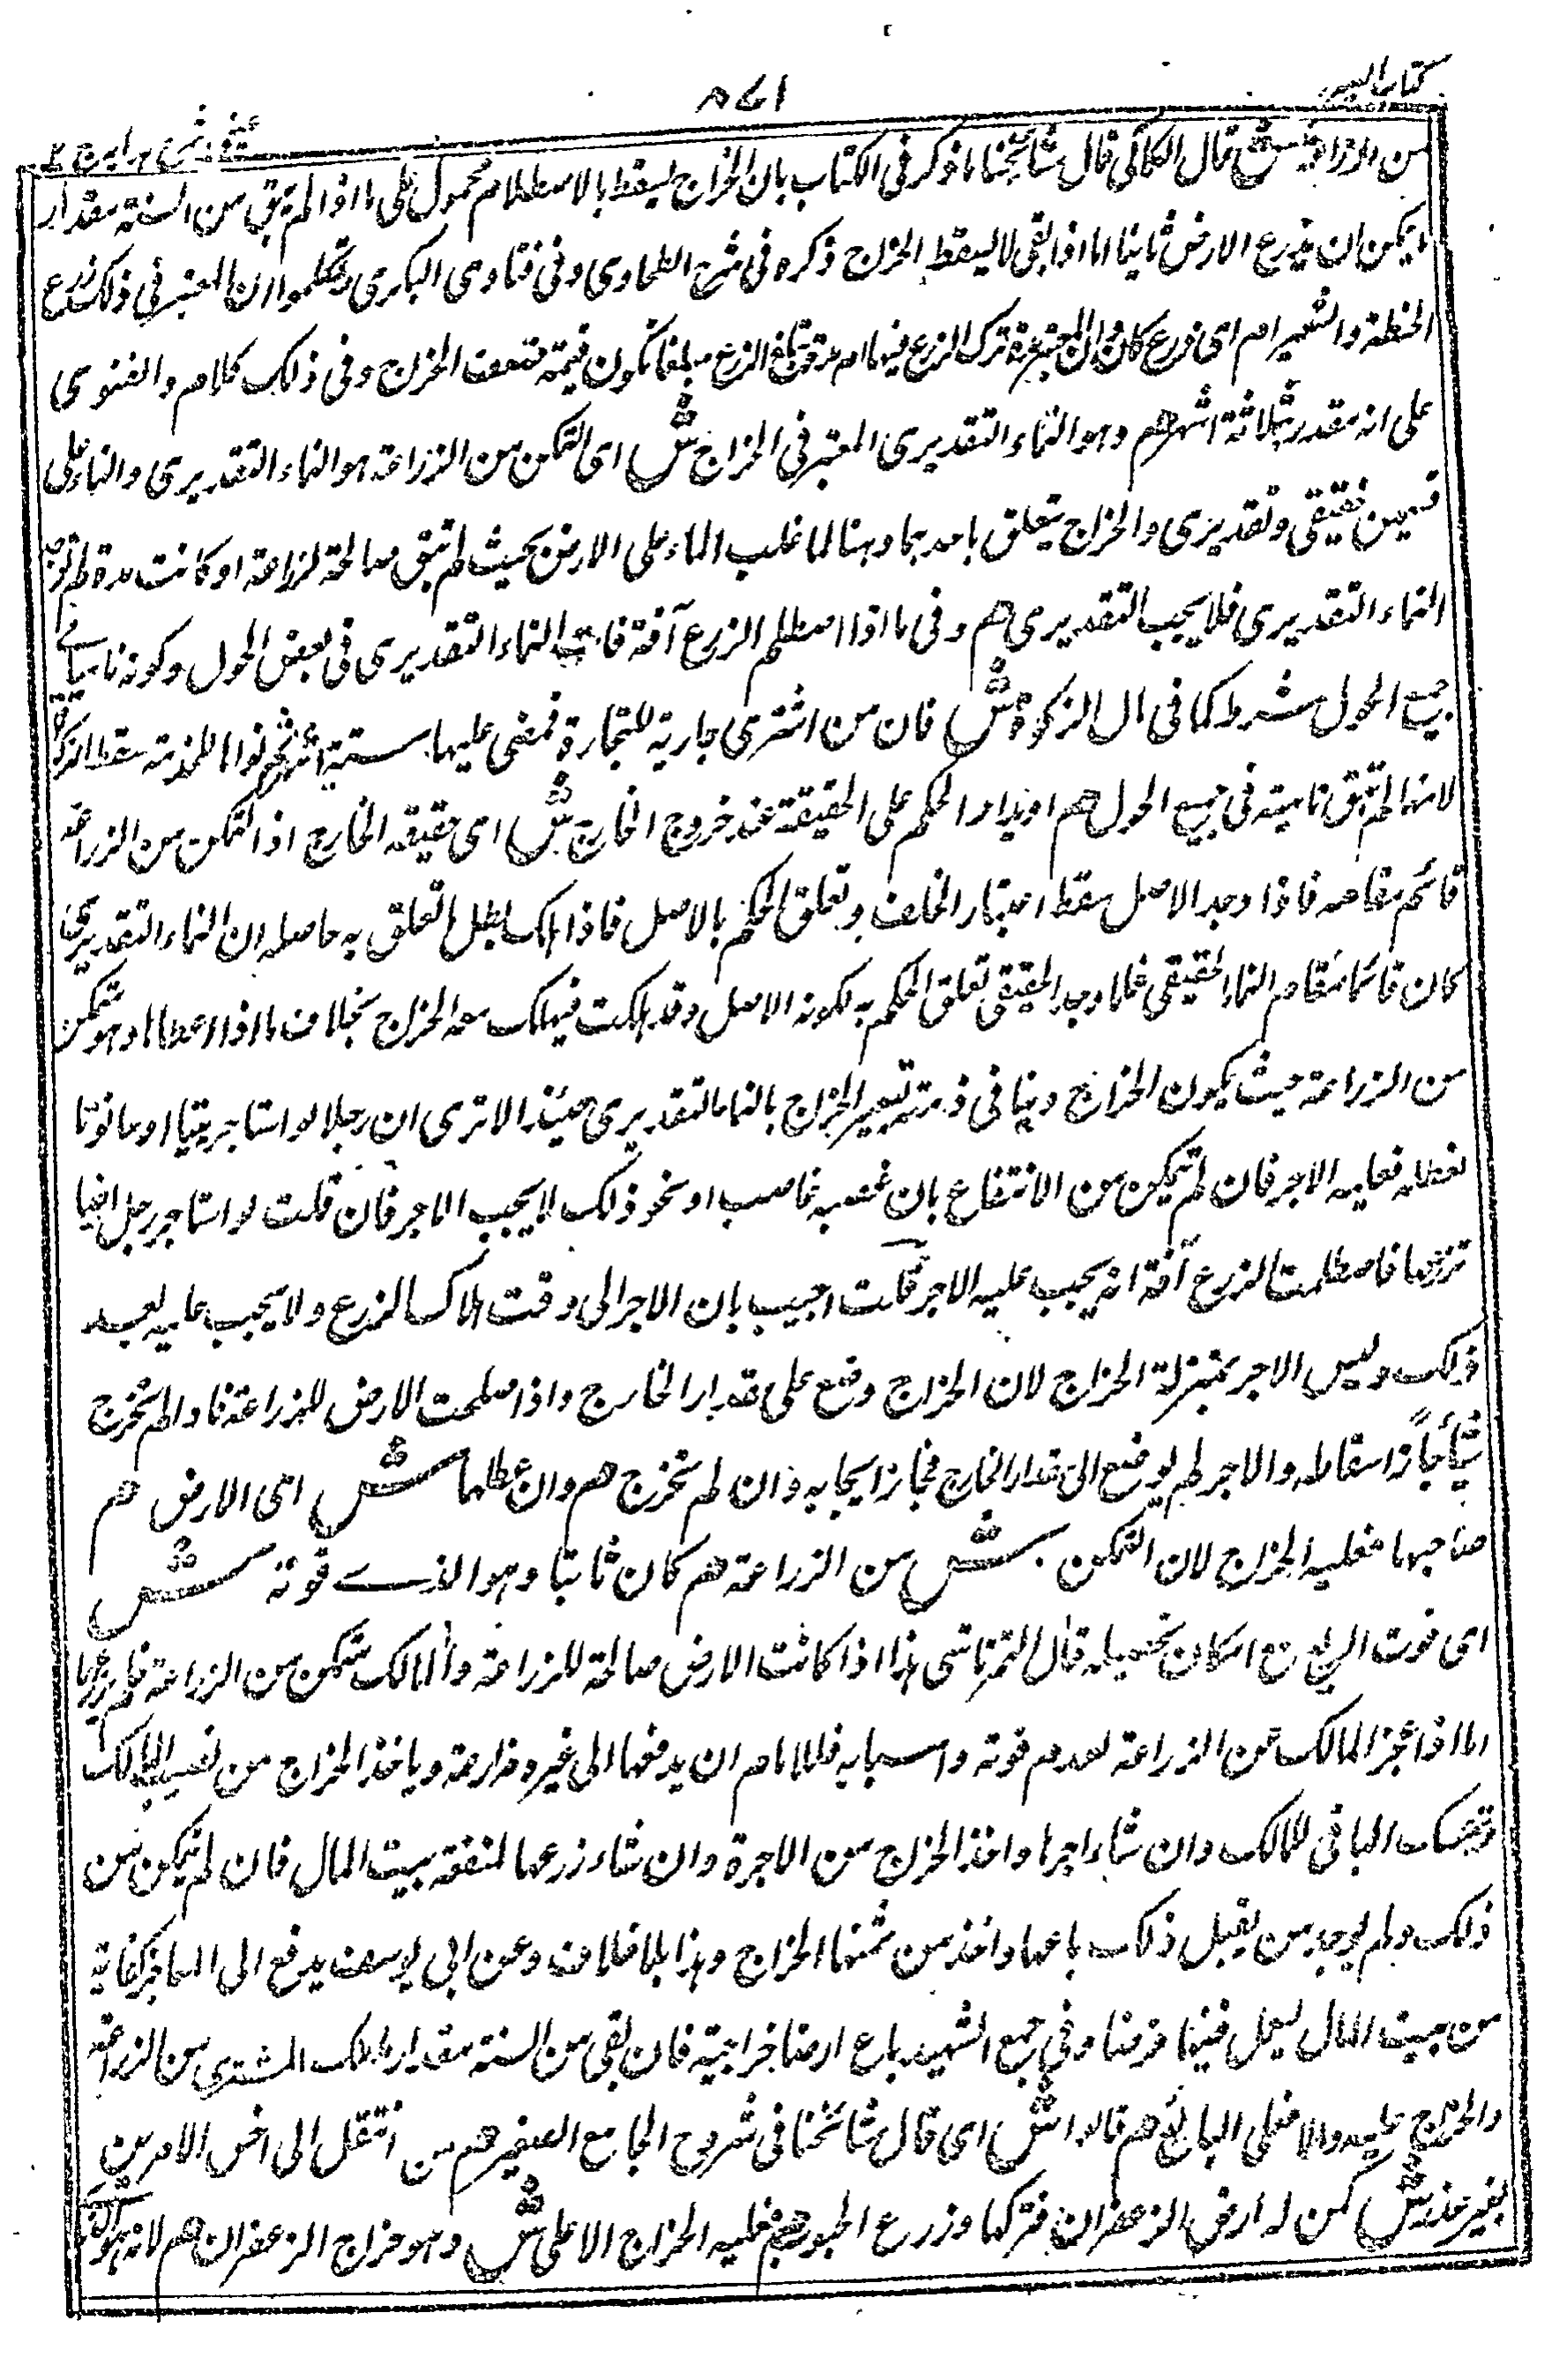 كتاب السير
٨٧١
عينى شرح هداية ج ٢
من الزراعة ش قال الكاكى قال مشائخنا ما ذكر فى الكتاب بان الخراج يسقط بالاصطلام محمول على ما اذا لم يبق من السنة مقدار
ما يمكن ان يزرع الارض ثانيا اما اذا بقى لا يسقط الخراج ذكره فى شرح الطحاوى وفى فتاوى الكبرى وتكلموا ان المعتبر فى ذلك زرع
الحنطة والشعير ام اى زرع كان وان المعتبر مدة ترك الزرع فيها ام مدة تبلغ الزرع مبلغا تكون قيمته ضعف الخراج وفى ذلك كلام والفتوى
على انه مقدر بثلاثة اشهر هم وهو النماء التقديرى المعتبر فى الخراج ش اى التمكن من الزراعة هو النماء التقديرى والنماء على
قسمين حقيقى وتقديرى والخراج يتعلق باحدهما وهنا لما غلب الماء على الارض بحيث لم تبق صالحة لزراعة او كانت مدة لم يوجد
النماء التقديرى فلا يجب التقديرى هم وفى ما اذا اصطلم الزرع آفة فات النماء التقديرى فى بعض الحول وكونه ناميا فى
جميع الحول شرط كما فى مال الزكوة ش فان من اشترى جارية للتجارة فمضى عليها ستة اشهر ثم نواها للخدمة سقط الزكوة
لانها لم تبق نامية فى جميع الحول هم او يدار الحكم على الحقيقة عند خروج الخارج ش اى حقيقة الخارج اذ التمكن من الزراعة
قائم مقامه فاذا وجد الاصل سقط اعتبار الخلف وتعلق الحكم بالاصل فاذا هلك بطل التعلق به حاصله ان النماء التقديرى
كان قائما مقام النماء الحقيقى فلما وجد الحقيقى تعلق الحكم به لكونه الاصل وقد هلكت فيهلك معه الخراج بخلاف ما اذا عطلها وهو متمكن
من الزراعة حيث يكون الخراج دينا فى ذمته الخراج بالنماء التقديرى حينئذ الا ترى ان رجلا لو استاجر بيتا او حانوتا
فعطله فعليه الاجر فان لم يتمكن من الانتفاع بان غصبه غاصب او نحو ذلك لا يجب الاجر فان قلت لو استاجر رجل ارضا
فزرعها فاصطلمت الزرع آفة انه يجب عليه الاجر قلت اجيب بان الاجر الى وقت هلاك الزرع ولا يجب عليه بعد
ذلك وليس الاجر بمنزلة الخراج لان الخراج وضع على مقدار الخارج واذا صلحت الارض للزراعة فاذا لم تخرج
شيئا جاز اسقاطه والاجر لم يوضع الى مقدار الخارج فجاز ايجابه وان لم تخرج هم وان عطلها ش اى الارض هم
صاحبها فعليه الخراج لان التمكن ش من الزراعة هم كان ثابتا وهو الذى فوته ش
اى فوت الريع مع امكان تحصيله قال التمرتاشى هذا اذا كانت الارض صالحة للزراعة والمالك متمكن من الزراعة فلم يزرعها
اما اذا عجز المالك عن الزراعة لعدم قوته واسبابه فللامام ان يدفعها الى غيره مزارعة وياخذ الخراج من نصيب المالك
ويمسك الباقى للمالك وان شاء اجرها واخذ الخراج من الاجرة وان شاء زرعها لنفقة بيت المال فان لم يتمكن من
ذلك ولم يوجد من يقبل ذلك باعها واخذ من ثمنها الخراج وهذا بلا خلاف وعن ابى يوسف يدفع الى العاجز كفاية
من بيت المال ليعمل فيها قرضا وفى جمع الشهيد باع ارضا خراجية فان بقى من السنة مقدار المشترى من الزراعة
والخراج عليه والا فعلى البائع هم قالوا ش اى قال مشائخنا فى شروح الجامع الصغير هم من انتقل الى اخس الامرين
بغير عذر ش كمن له ارض الزعفران فتركها وزرع الحبوب هم فعليه الخراج الاعلى ش وهو خراج الزعفران هم لانه هو